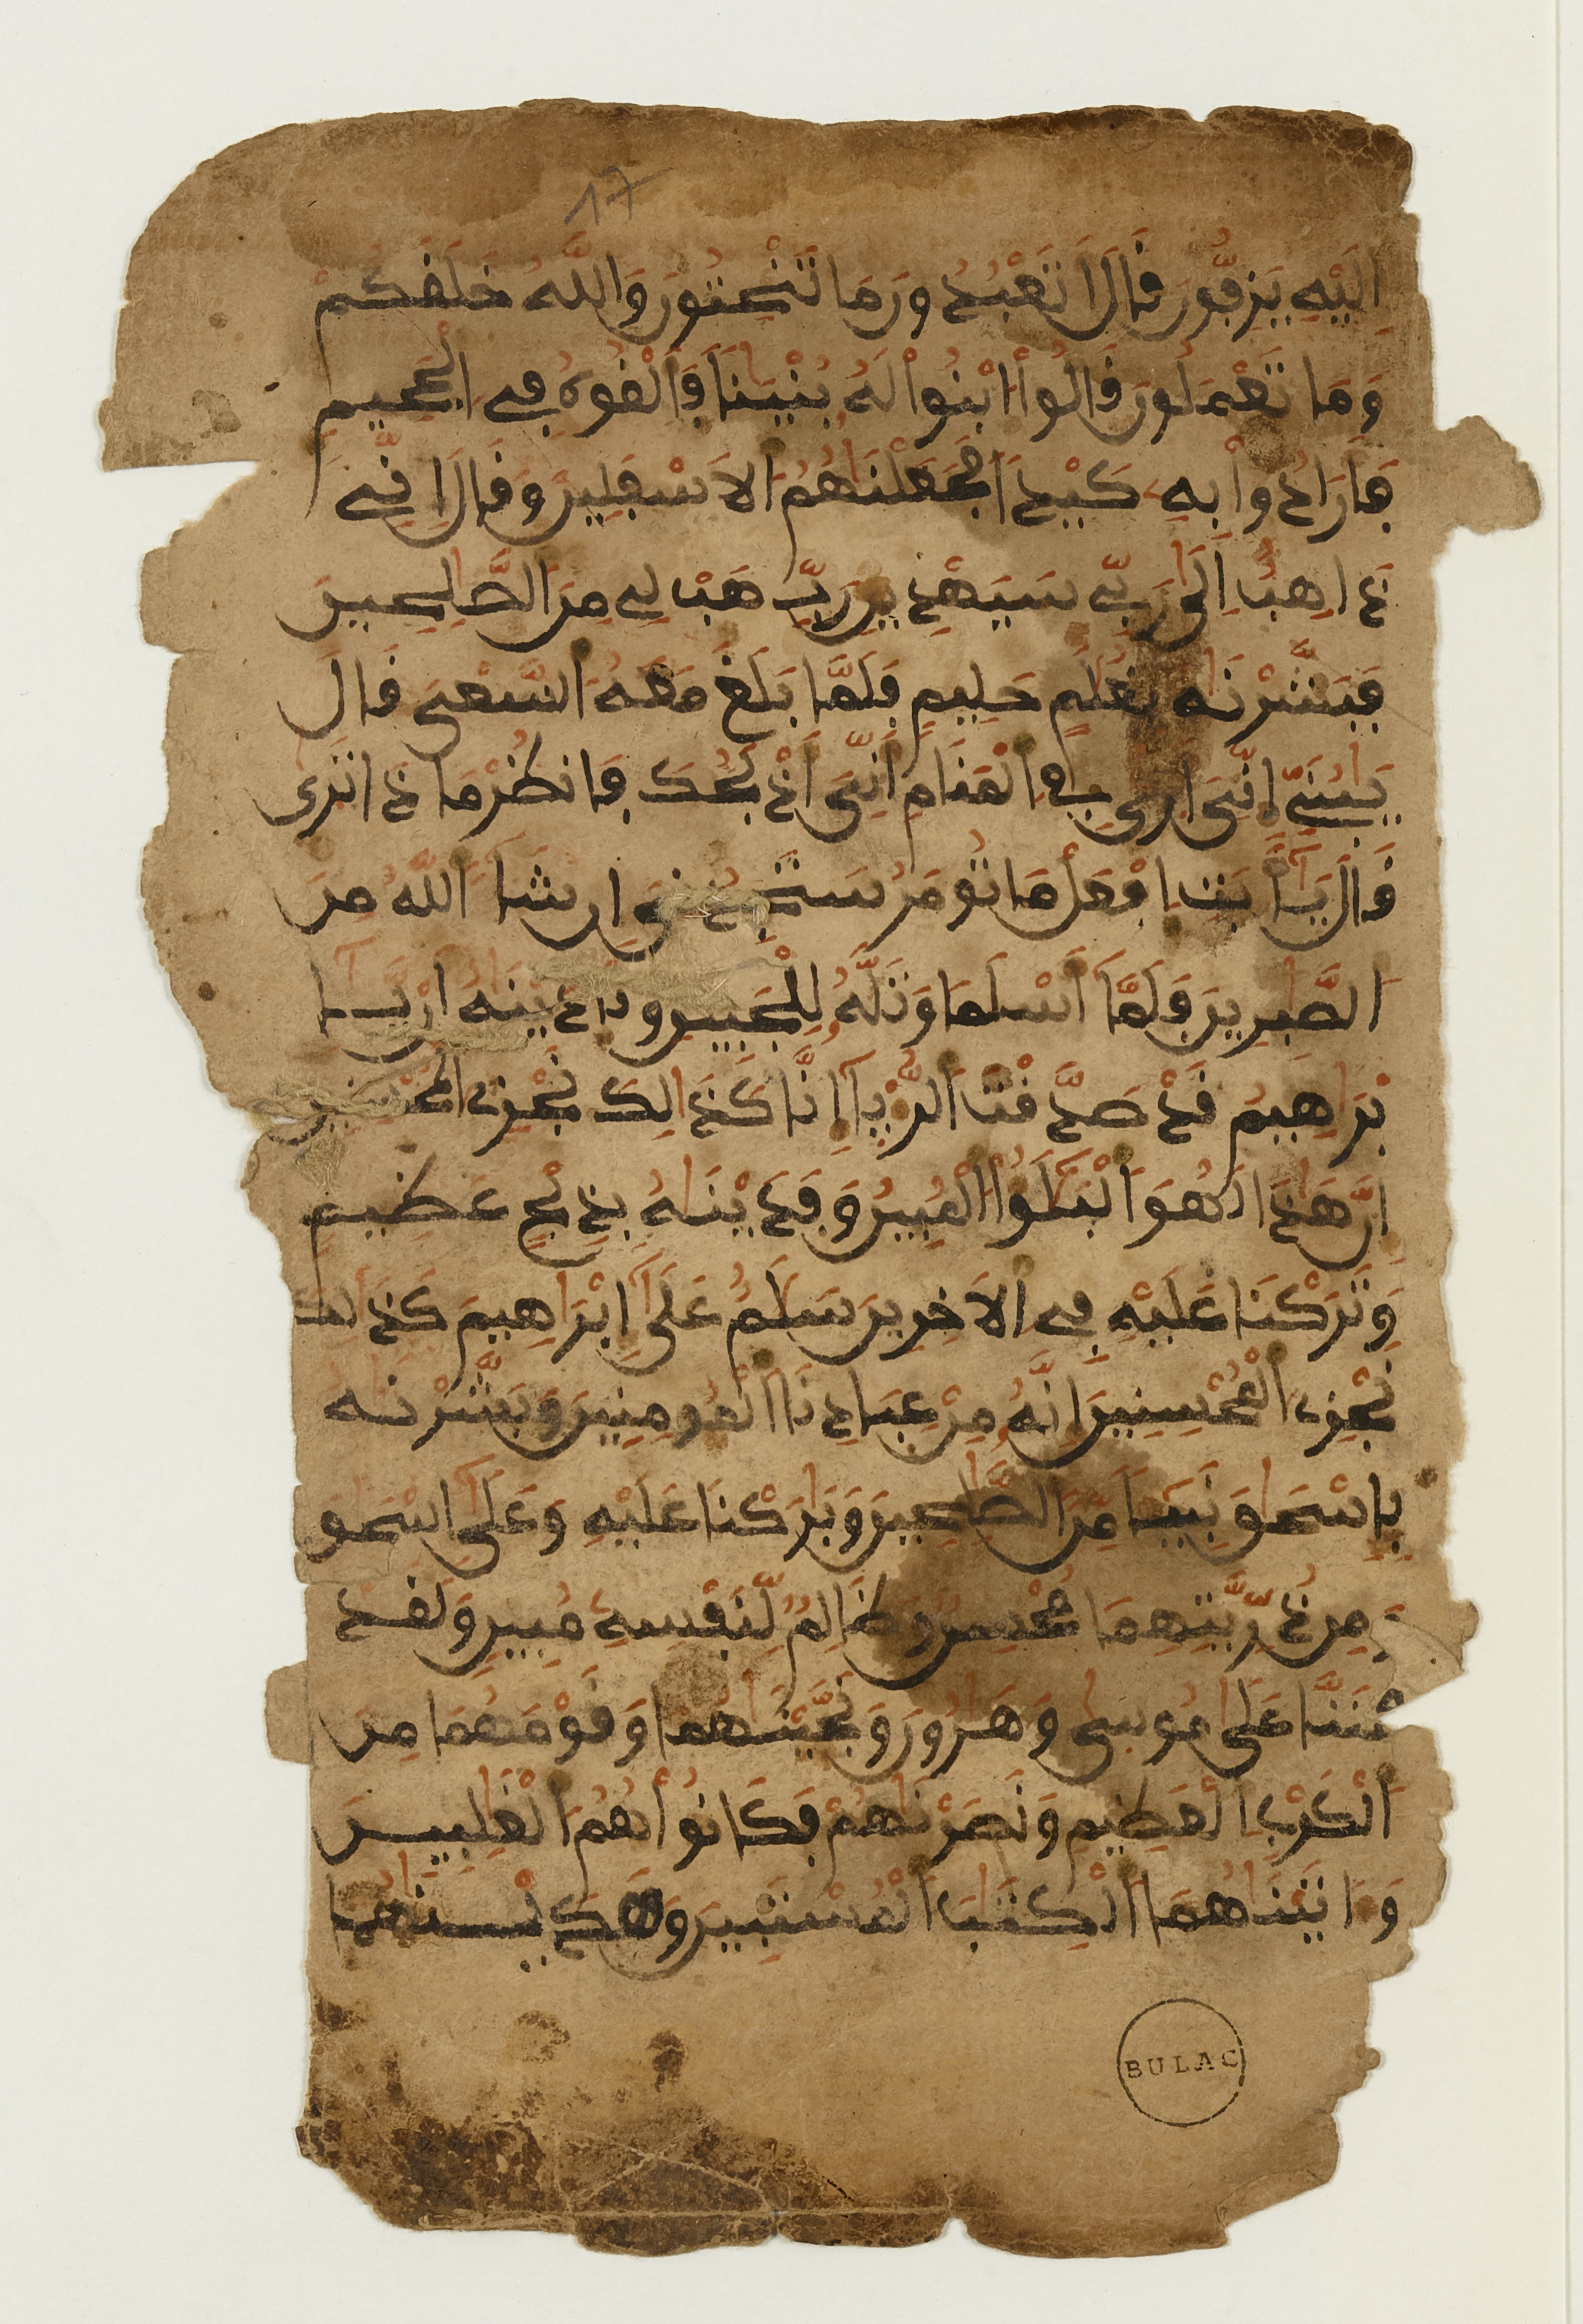 17
إِلَيْهِ يَزِفُّونَ قَالَ أَتَعْبُدُونَ مَا تَنْحِتُونَ وَاللَّهُ خَلَقَكُمْ
وَمَا تَعْمَلُونَ قَالُواْ ابْنُواْ لَهُ بُنْيَٰنا فَأَلْقُوهُ فِے اِلْجَحِيمِ
فَأَرَادُواْ بِهِ كَيْداً فَجَعَلْنَٰهُمُ الَاسْفَلِينَ وَقَالَ إِنِّے
ذَاهِبٌ إِلَىٰ رَبِّے سَيَهْدِينِ رَبِّ هَبْ لِے مِنَ الصَّٰلِحِينَ
فَبَشَّرْنَٰهُ بِغُلَٰمٍ حَلِيمٍ فَلَمَّا بَلَغَ مَعَهُ السَّعْىَ قَالَ
يَٰبُنَىِّ إِنِّىَ أَرَىٰ فِے اِلْمَنَامِ أَنِّىَ أَذْبَحُكَ فَانظُرْ مَاذَا تَرَىٰ
قَالَ يَٰأَبَتِ اِفْعَلْ مَا تُومَرُ سَتَجِدُنِىَ إِن شَآءَ اَللَّهُ مِنَ
اَلصَّٰبِرِينَ فَلَمَّا أَسْلَمَا وَتَلَّهُ لِلْجَبِينِ وَنَٰدَيْنَٰهُ أَنْ يَّٰإِ
بْرَٰهِيمُ قَدْ صَدَّقْتَ اَلرُّءْيَا إِنَّا كَذَٰلِكَ نَجْزِے اِلْمُحْسِنِينَ
إِنَّ هَٰذَا لَهُوَ اَلْبَلَٰٓؤُاْ اُلْمُبِينُ وَفَدَيْنَٰهُ بِذِبْحٍ عَظِيمٍ
وَتَرَكْنَا عَلَيْهِ فِے اِلَاخِرِينَ سَلَٰمٌ عَلَىٰ إِبْرَٰهِيمَ كَذَٰلِكَ
نَجْزِے اِلْمُحْسِنِينَ إِنَّهُ مِنْ عِبَادِنَا اَلْمُومِنِينَ وَبَشَّرْنَٰهُ
بِإِسْحَٰقَ نَبِيٓـاً مِّنَ اَلصَّٰلِحِينَ وَبَٰرَكْنَا عَلَيْهِ وَعَلَىٰ إِسْحَٰقَ
وَمِن ذُرِّيَّتِهِمَا مُحْسِنٌ وَظَالِمٌ لِّنَفْسِهِ مُبِينٌ وَلَقَدْ
مَنَنَّا عَلَىٰ مُوسَىٰ وَهَٰرُونَ وَنَجَّيْنَٰهُمَا وَقَوْمَهُمَا مِنَ
اَلْكَرْبِ اِلْعَظِيمِ وَنَصَرْنَٰهُمْ فَكَانُواْ هُمُ اُلْغَٰلِبِينَ
وَءَاتَيْنَٰهُمَا اَلْكِتَٰبَ اَلْمُسْتَبِينَ وَهَدَيْنَٰهُمَا
BULAC